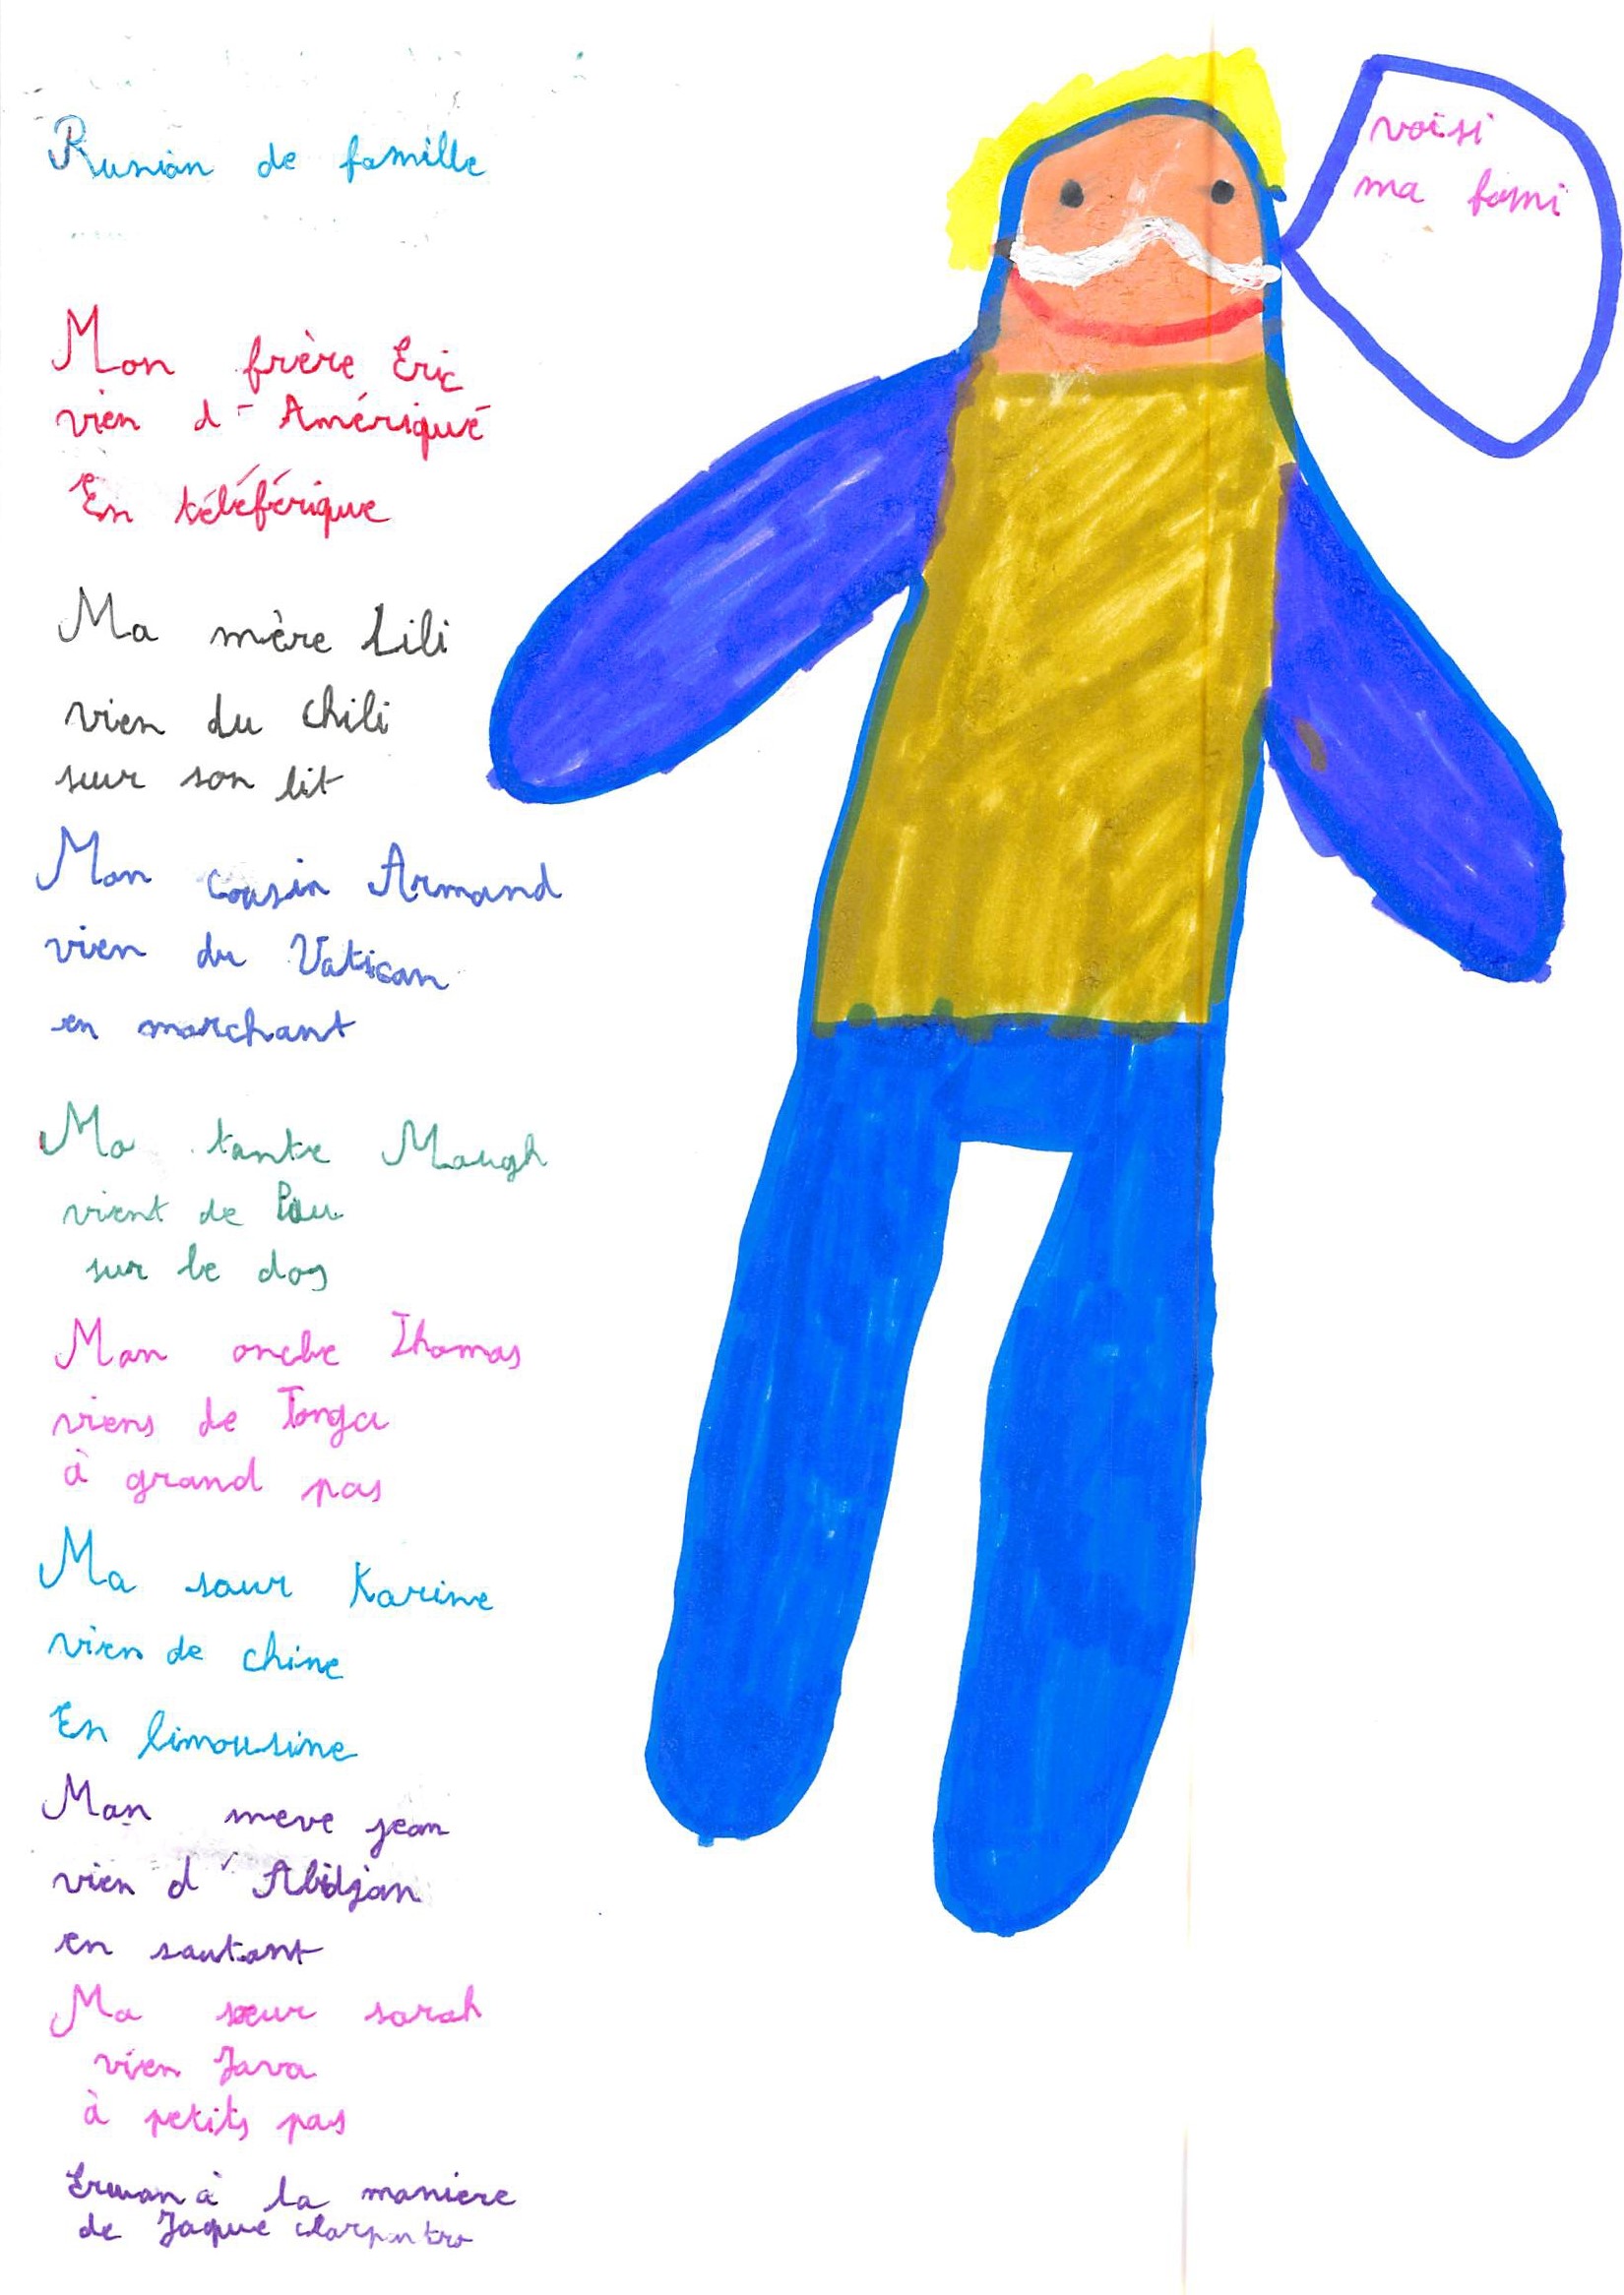 Runion de famille
Mon frère Eric
vien d'Amériqué
En téléférique
Ma mère Lili
vien du chili
sur son lit
Mon cousin Armand
vien du Vatican
en marchant
Ma tante Maugh
vient de Pau
sur le dos
Mon oncle Thomas
viens de Tonga
à grand pas
Ma sœur Karine
vien de chine
En limousine
Mon neve jean
vien d'Abidjan
en sautant
Ma sœur sarah
vien Java
à petits pas
Erwan à la maniere
de Jaque
voisi
ma fami